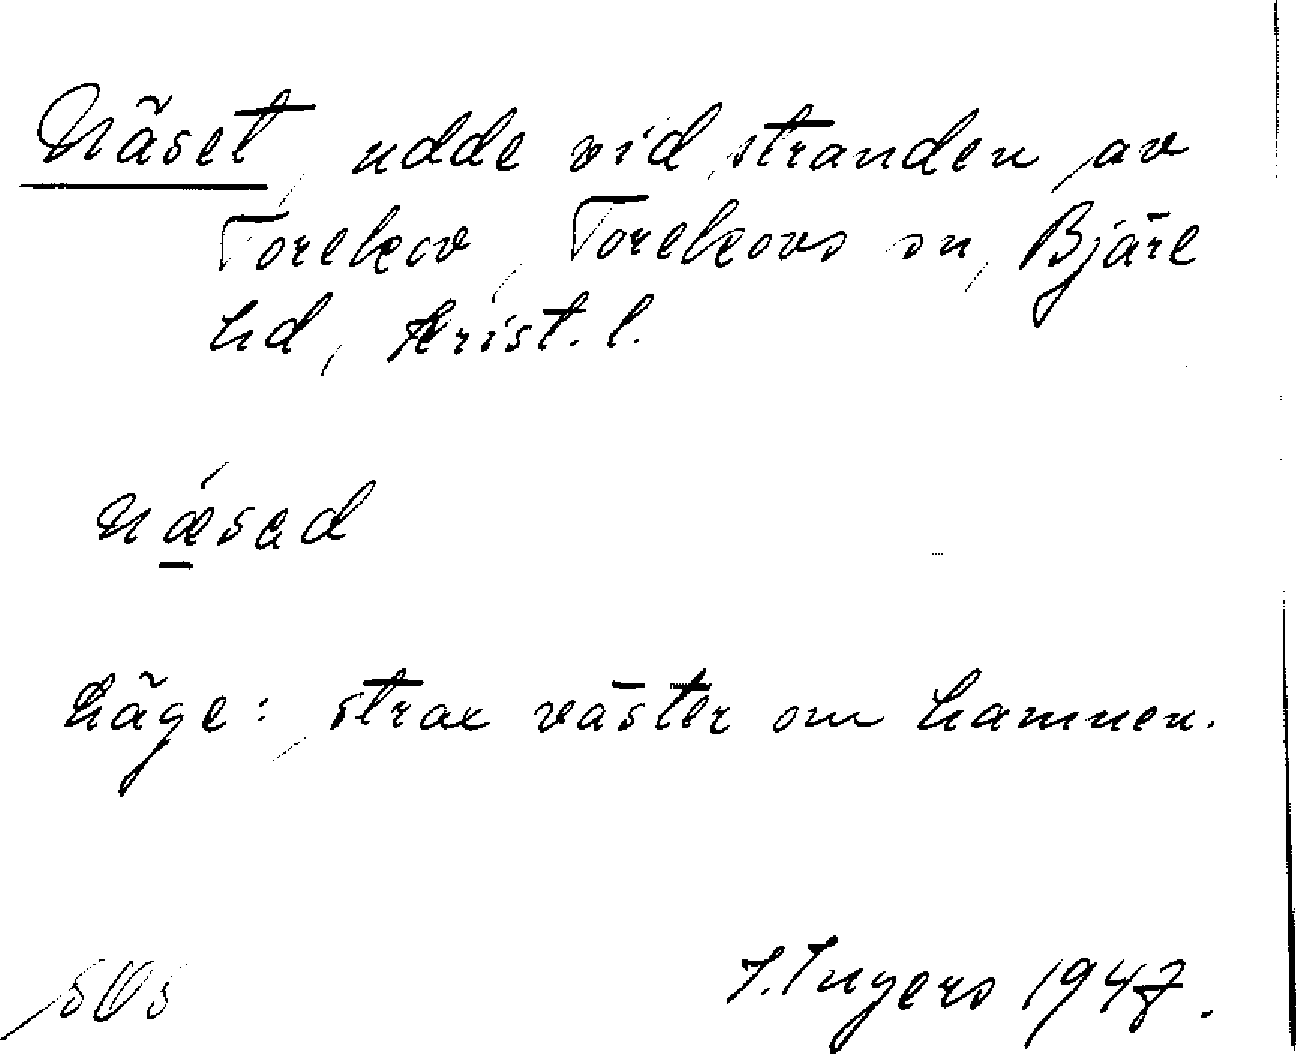 Näset, udde vid stranden av
Torekov, Torekovs sn, Bjäre
hd, Krist. l.
næ´sad
Läge: strax väster om hamnen.
I. Ingers 1947.